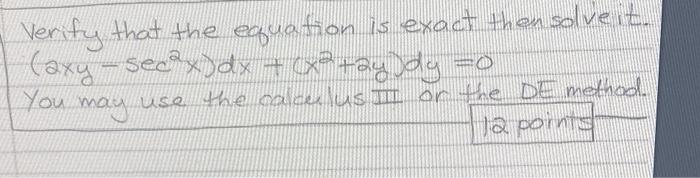 Verify that the equation is exact then solve it.
(2xy - sec²x)dx + (x²+2y)dy = 0
You may use the calculus III or the DE method.
12 points